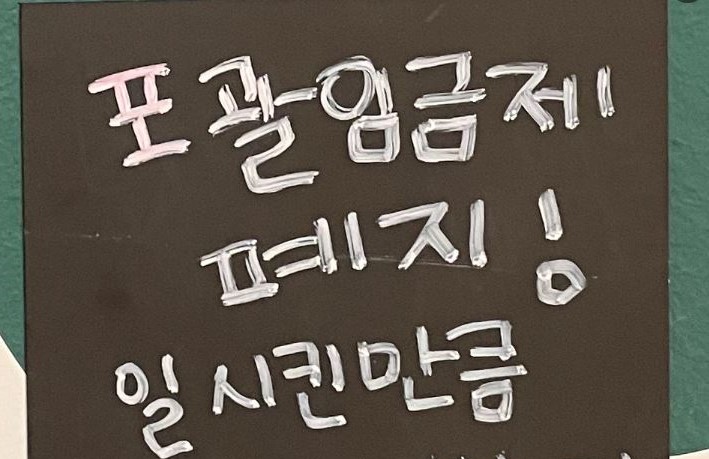 포괄임금제
폐지!
일 시킨만큼